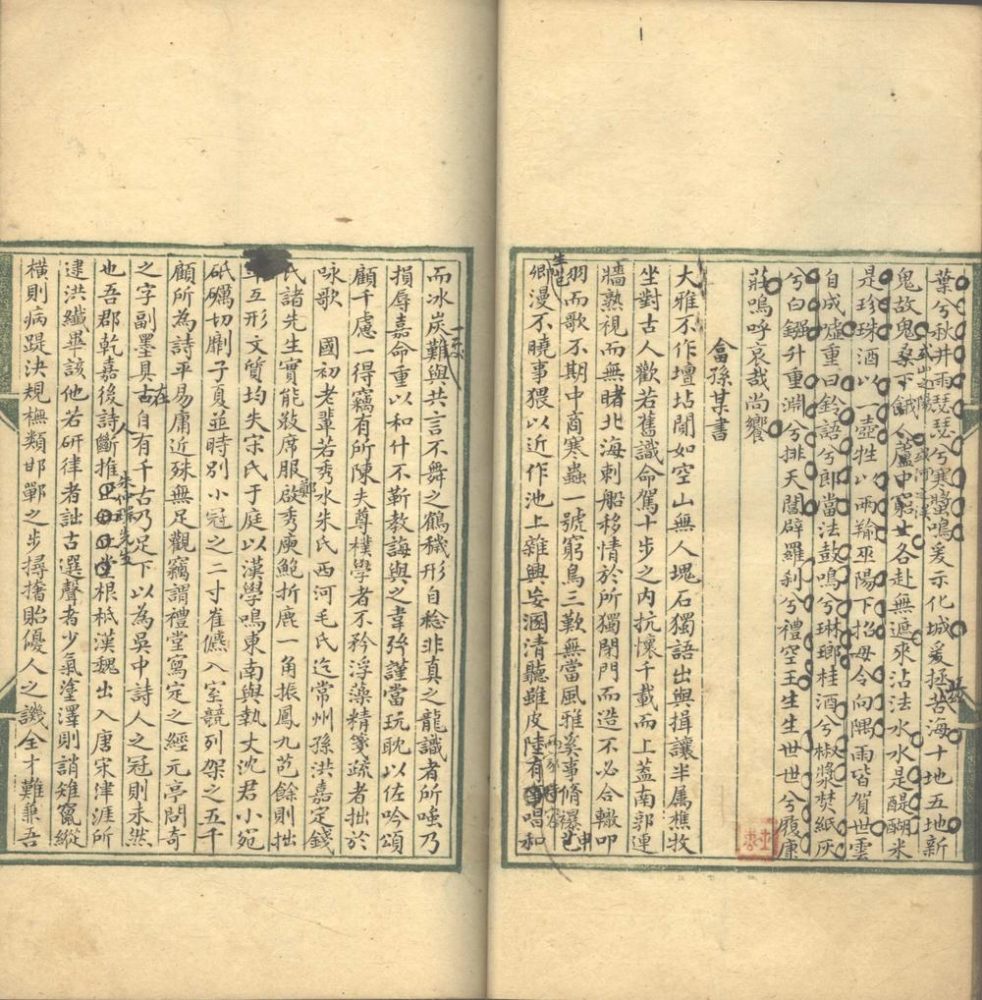 葉兮秋井雨瑟瑟兮寒螿鳴爰示化城爰拯苦海十地五地新
鬼故鬼桑下餓人蘆中窮士各赴無遮來沾法水水是醍醐米
是珍珠酒以一壺牲以兩羭巫陽下招毋令向隅雨皆賀世雲
自成墟重曰鈴語兮郎當法鼓鳴兮琳瑯桂酒兮椒漿焚紙灰
兮白鏹升重淵兮排天閶辟羅剎兮禮空王生生世世兮履康
莊嗚呼哀哉尚饗
畣孫某書
大雅不作壇坫閴如空山無人塊石獨語出與揖讓半属樵牧
坐對古人歡若舊識命駕十步之内抗懷千載而上蓋南郭連
牆熟視而無睹北海刺船移情於所獨閉門而造不必合轍叩
羽而歌不期中商寒蟲一號窮鳥三歎無當風雅奚事脩襮
卿漫不曉事猥以近作池上雜興妄溷清聽雖皮陸有唱和
而冰炭難與共言不舞之鶴穢形自稔非真之龍識者所嗤乃
損辱嘉命重以和什不靳教誨與之韋弦謹當玩耽以佐吟頌
顧千慮一得竊有所陳夫尊樸學者不矜浮藻精箋疏者拙於
咏歌　國初老輩若秀水朱氏西河毛氏迄常州孫洪嘉定錢
氏諸先生實能敓席服鄭啟秀庾鮑折鹿一角振鳳九苞餘則拙
五形文質均失宋氏于庭以漢學鳴東南與執丈沈君小宛
砥礪切劘子夏並時别小冠之二寸崔儦入室競列架之五千
顧所為詩平易庸近殊無足觀竊謂禮堂寫定之經元亭問奇
之字副墨具在自有千古乃足下以為吳中詩人之冠則未然
也吾郡乾嘉後詩人斷推朱仲環先生根柢漢魏出入唐宋津涯所
逮洪纖畢該他若研律者詘古選聲者少氣塗澤則誚雉竄縱
横則病踶決規橅類邯鄲之步撏撦貽優人之譏全才難兼吾